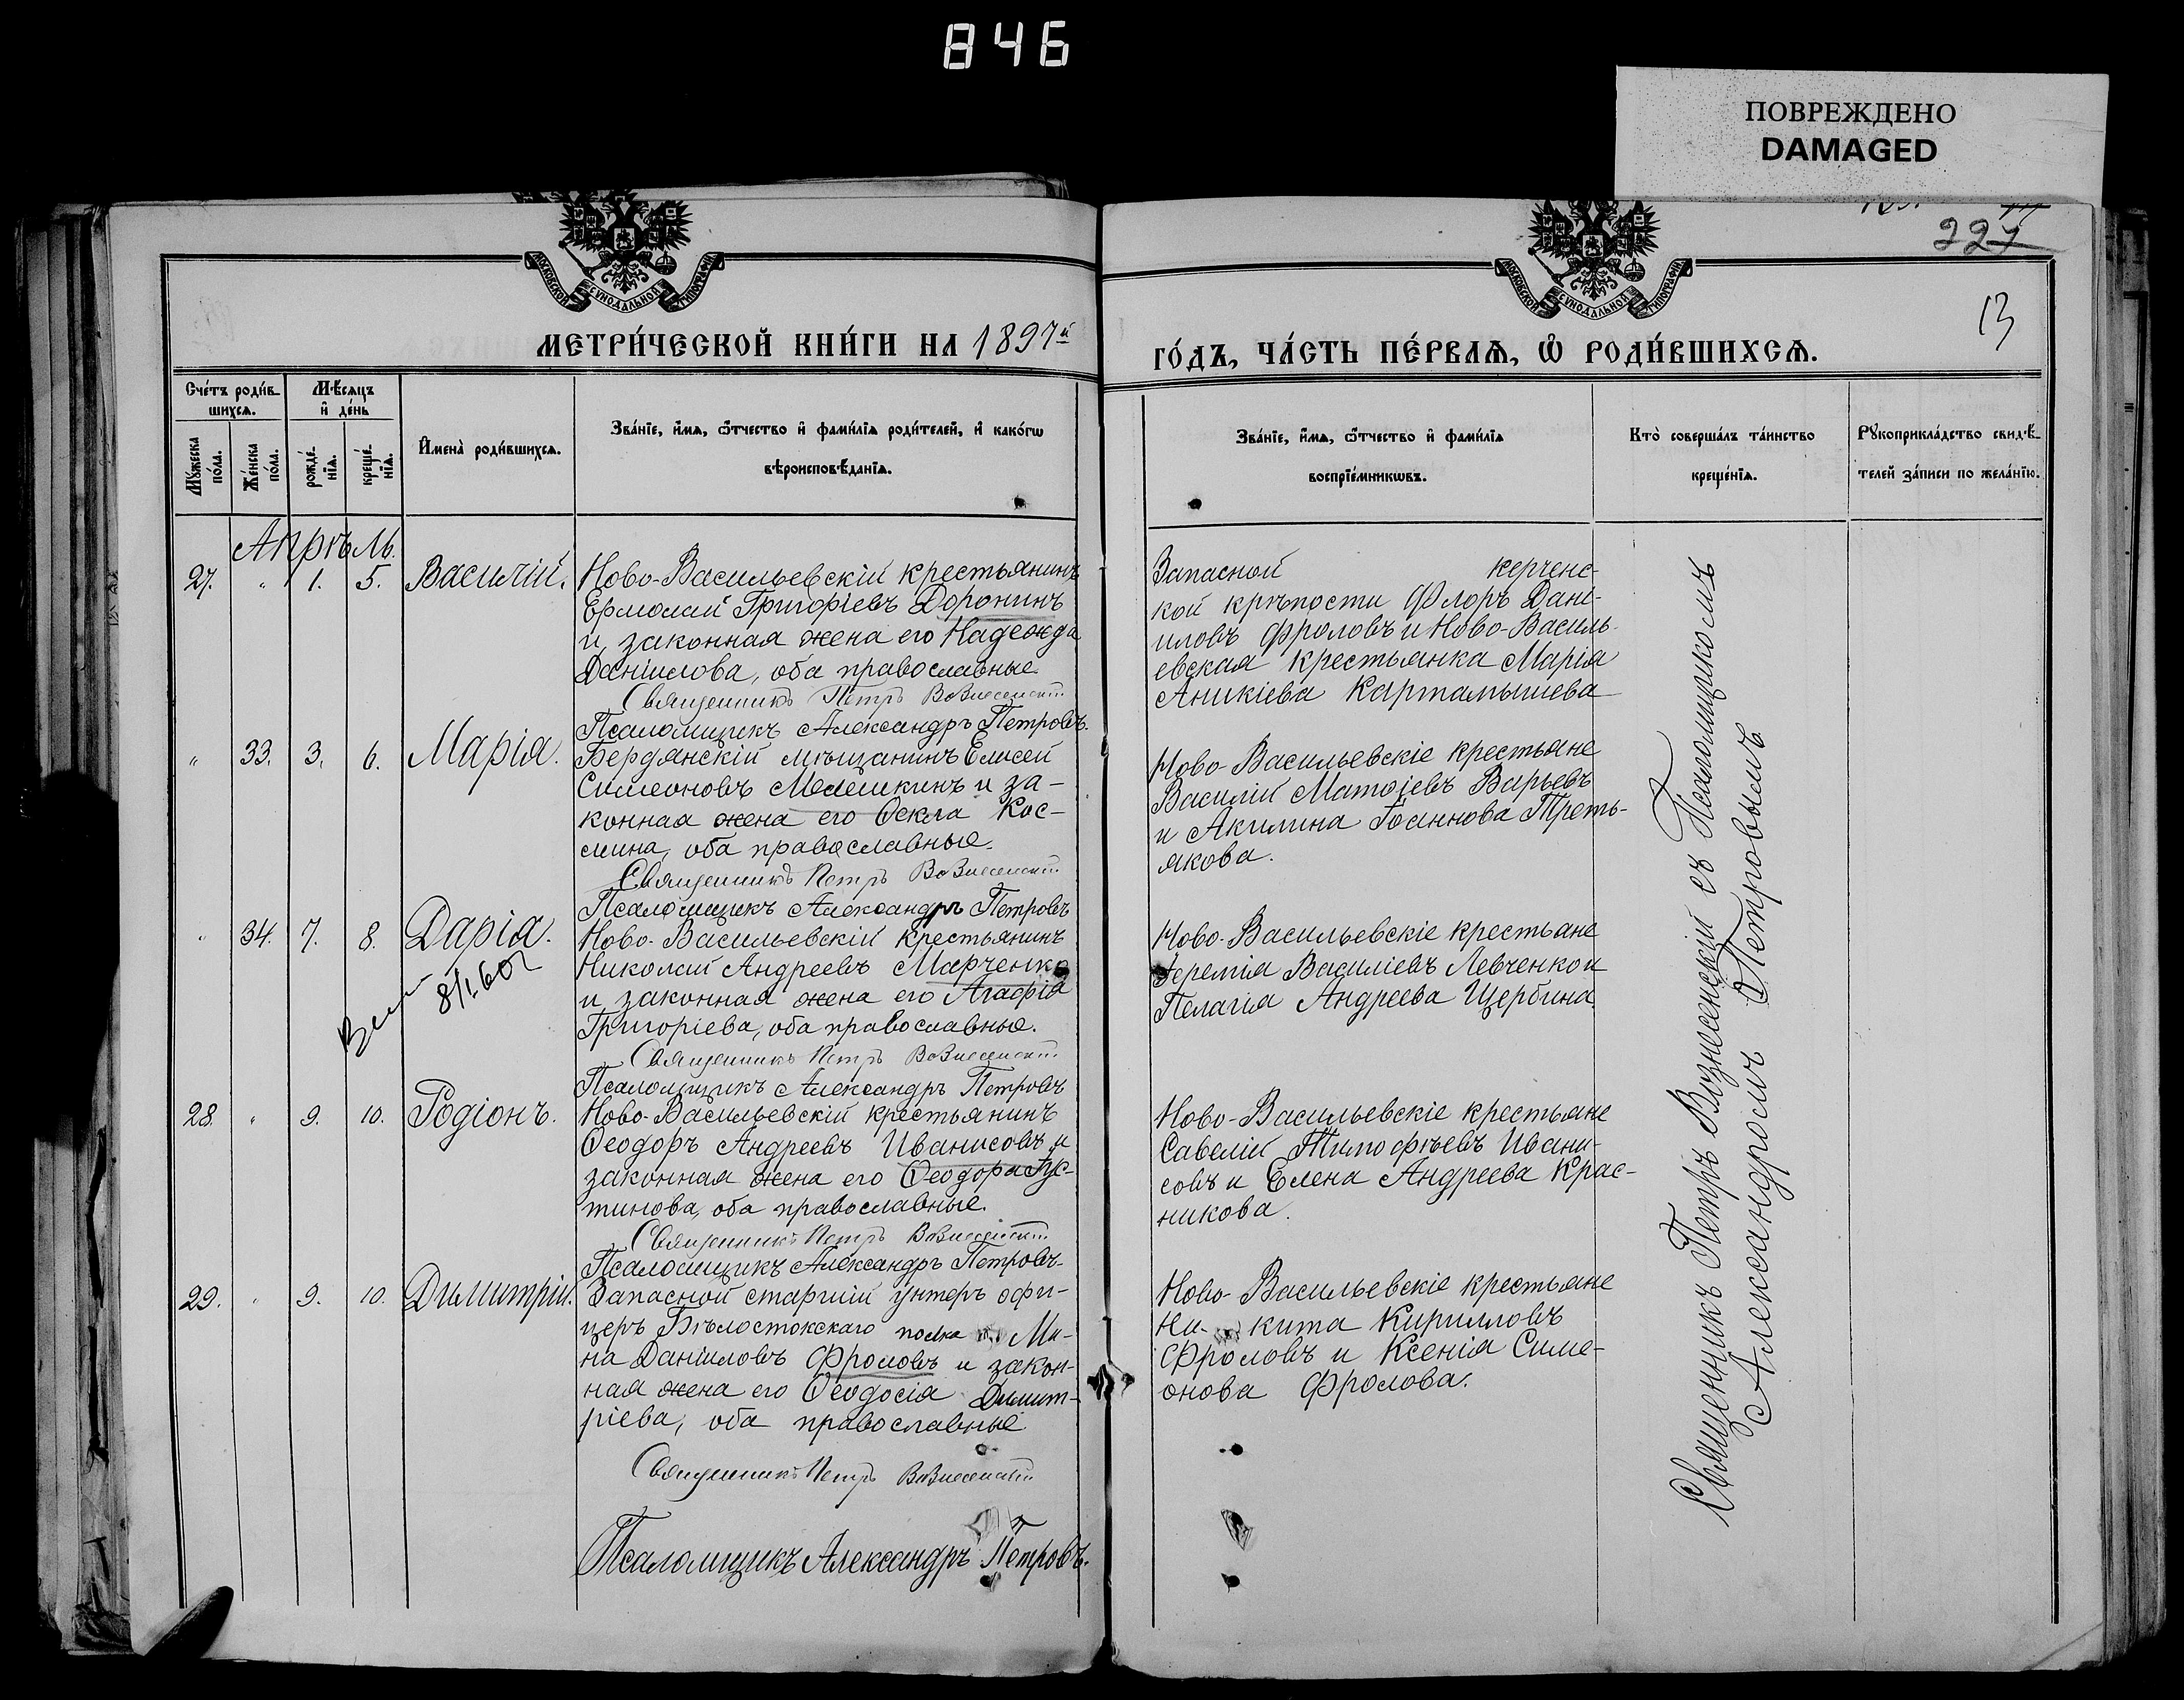 846
ПОВРЕЖДЕНО
DAMAGED
227
13
МОСКОВСКОЙ СѴНОДАЛЬНОЙ ТИПОГРАФІИ
МОСКОВСКОЙ СѴНОДАЛЬНОЙ ТИПОГРАФІИ
МЕТРИ́ЧЕСКОЙ КНИ́ГИ НА 1897й
ГО́ДЪ, ЧА́СТЬ ПЕ́РВАѦ, Ѽ РОДИ́ВШИХСѦ.
Сче́тъ роди́в-
шихсѧ.
Мѣ́сѧцъ
и҆ де́нь
Мꙋ́жеска
по́ла.
Же́нска
по́ла.
рожде́-
нїѧ.
креще́-
нїѧ.
И҆мена̀ роди́вшихсѧ.
Зва́нїе, и҆́мѧ, ѻ҆́тчество и҆ фами́лїѧ роди́телей, и҆ како́гѡ
вѣроисповѣ́данїѧ.
Зва́нїе, и҆́мѧ, ѻ҆́тчество и҆ фами́лїѧ
воспрїе́мникѡвъ.
Кто̀ соверша́лъ та́инство
креще́нїѧ.
Рꙋкоприкла́дство свидѣ́-
телей за́писи по жела́нїю.
Апрѣль.
27. " 1. 5. Василій.
Ново-Васильевскій крестьянинъ
Ермолай Григоріевъ Доронинъ
и, законная жена его Надежда
Даніилова, оба православные.
Священникъ Петръ Вознесенскій
Псаломщикъ Александръ Петровъ.
Запасной керченс-
кой крѣпости Флоръ Дані-
иловъ Фроловъ и Ново-Василь-
евская крестьянка Марія
Аникіева Картамышева
" 33. 3. 6. Марія.
Бердянскій мѣщанинъ Елисей
Симеоновъ Мелешкинъ и за-
конная жена его Ѳекла Кос-
мина, оба православные.
Священникъ Петръ Вознесенскій
Псаломщикъ Александръ Петровъ
Ново-Васильевскіе крестьяне
Василій Матѳіевъ Варьевъ
и Акилина Іоаннова Треть-
якова.
" 34. 7. 8. Дарія.
8/I.60г
Ново-Васильевскій крестьянинъ
Николай Андреевъ Марченко
и законная жена его Агафія
Григоріева, оба православные.
Священникъ Петръ Вознесенскій
Псаломщикъ Александръ Петровъ
Ново-Васильевскіе крестьяне
Іеремія Василіевъ Левченко и
Пелагія Андреева Щербина
28. " 9. 10. Родіонъ.
Ново-Васильевскій крестьянинъ
Ѳеодоръ Андреевъ Иванисовъ и
законная жена его Ѳеодора Іус-
тинова, оба православные.
Священникъ Петръ Вознесенскій
Псаломщикъ Александръ Петровъ
Ново-Васильевскіе крестьяне
Савелій Тимофѣевъ Ивани-
совъ и Елена Андреева Крас-
никова.
29. " 9. 10. Димитрій.
Запасной старшій унтеръ офи-
церъ Бѣлостокскаго полка Ми-
на Даніиловъ Фроловъ и закон-
ная жена его Ѳеодосія Димит-
ріева, оба православные
Священникъ Петръ Вознесенскій
Псаломщикъ Александръ Петровъ.
Ново-Васильевскіе крестьяне
Ни- кита Кирилловъ
Фроловъ и Ксенія Симе-
онова Фролова.
Священникъ Петръ Вознесенскій съ Псаломщикомъ
Александромъ Петровымъ.